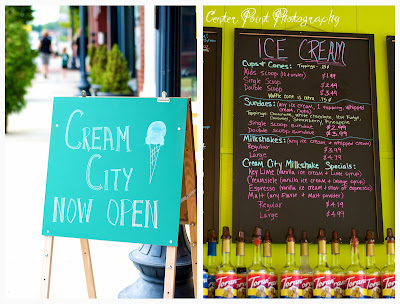 CREAM
CITY
NOW OPEN
Center Point Photography
ICE CREAM
Cups & Cones: Toppings - .75¢
Kids Scoop
Single Scoop $2.49
Double Scoop $3.49
Waffle cone is extra .75¢
Sundaes: (any ice cream, 1 topping, whipped
cream, nuts)
Toppings: Chocolate, White chocolate, Hot fudge,
Caramel, Strawberry, Pineapple
Single Scoop sundae $2.99
Double scoop sundae $3.99
Milkshakes: (any ice cream + whipped cream)
Regular $3.99
Large $4.79
Cream City Milkshake Specials:
Key Lime (vanilla ice cream + lime syrup)
Creamsicle (vanilla ice cream + orange syrup)
Espresso (vanilla ice cream + shot of espresso)
Malt (any flavor + malt powder)
Regular $4.19
Large $4.99
Torani
Torani
Torani
Torani
Torani